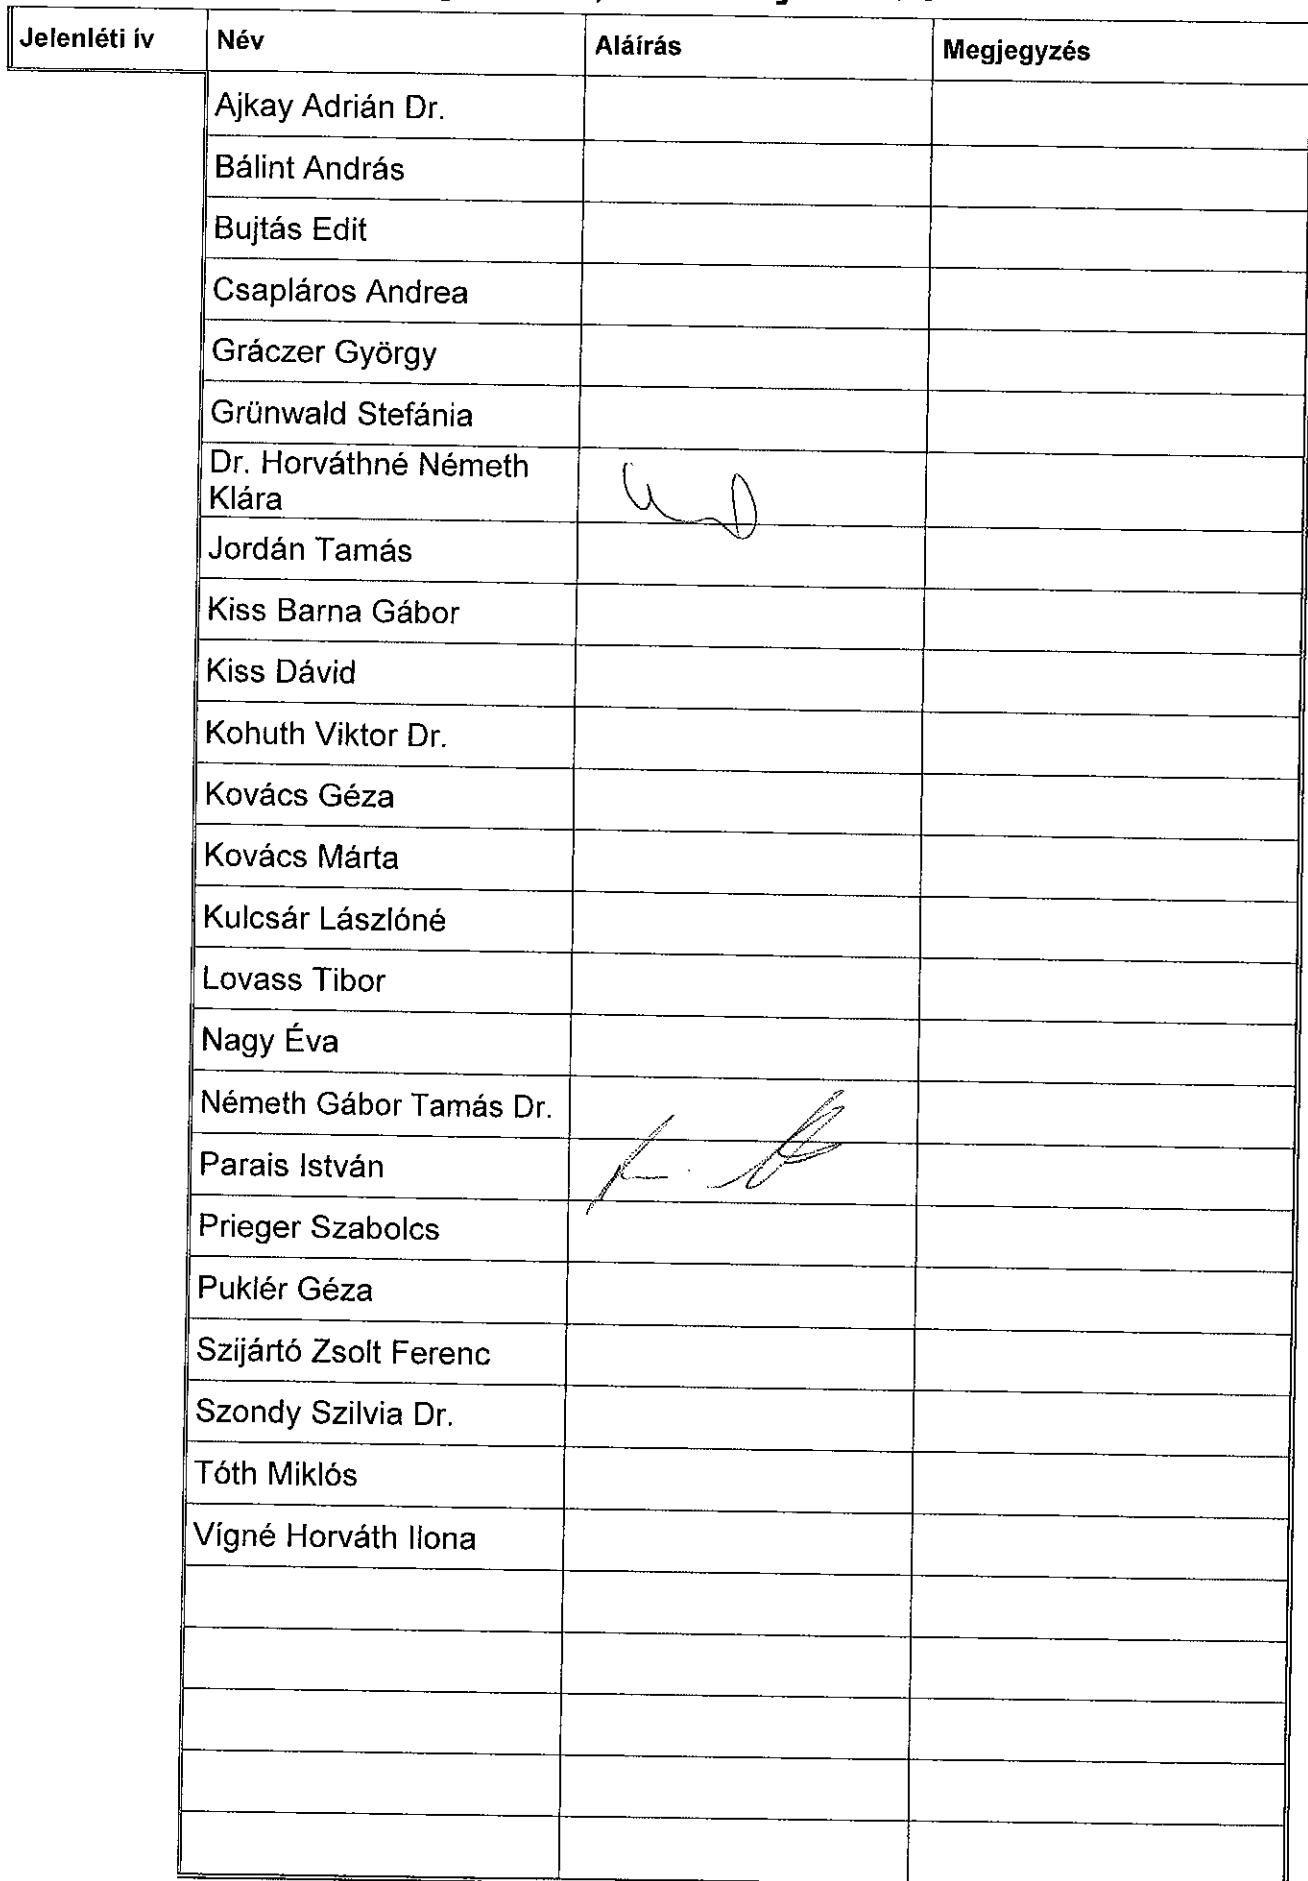 Jelenléti ív Név Aláírás Megjegyzés
Ajkay Adrián Dr.
Bálint András
Bujtás Edit
Csapláros Andrea
Gráczer György
Grünwald Stefánia
Dr. Horváthné Németh
Klára
Jordán Tamás
Kiss Barna Gábor
Kiss Dávid
Kohuth Viktor Dr.
Kovács Géza
Kovács Márta
Kulcsár Lászlóné
Lovass Tibor
Nagy Éva
Németh Gábor Tamás Dr.
Parais István
Prieger Szabolcs
Puklér Géza
Szijártó Zsolt Ferenc
Szondy Szilvia Dr.
Tóth Miklós
Vígné Horváth Ilona